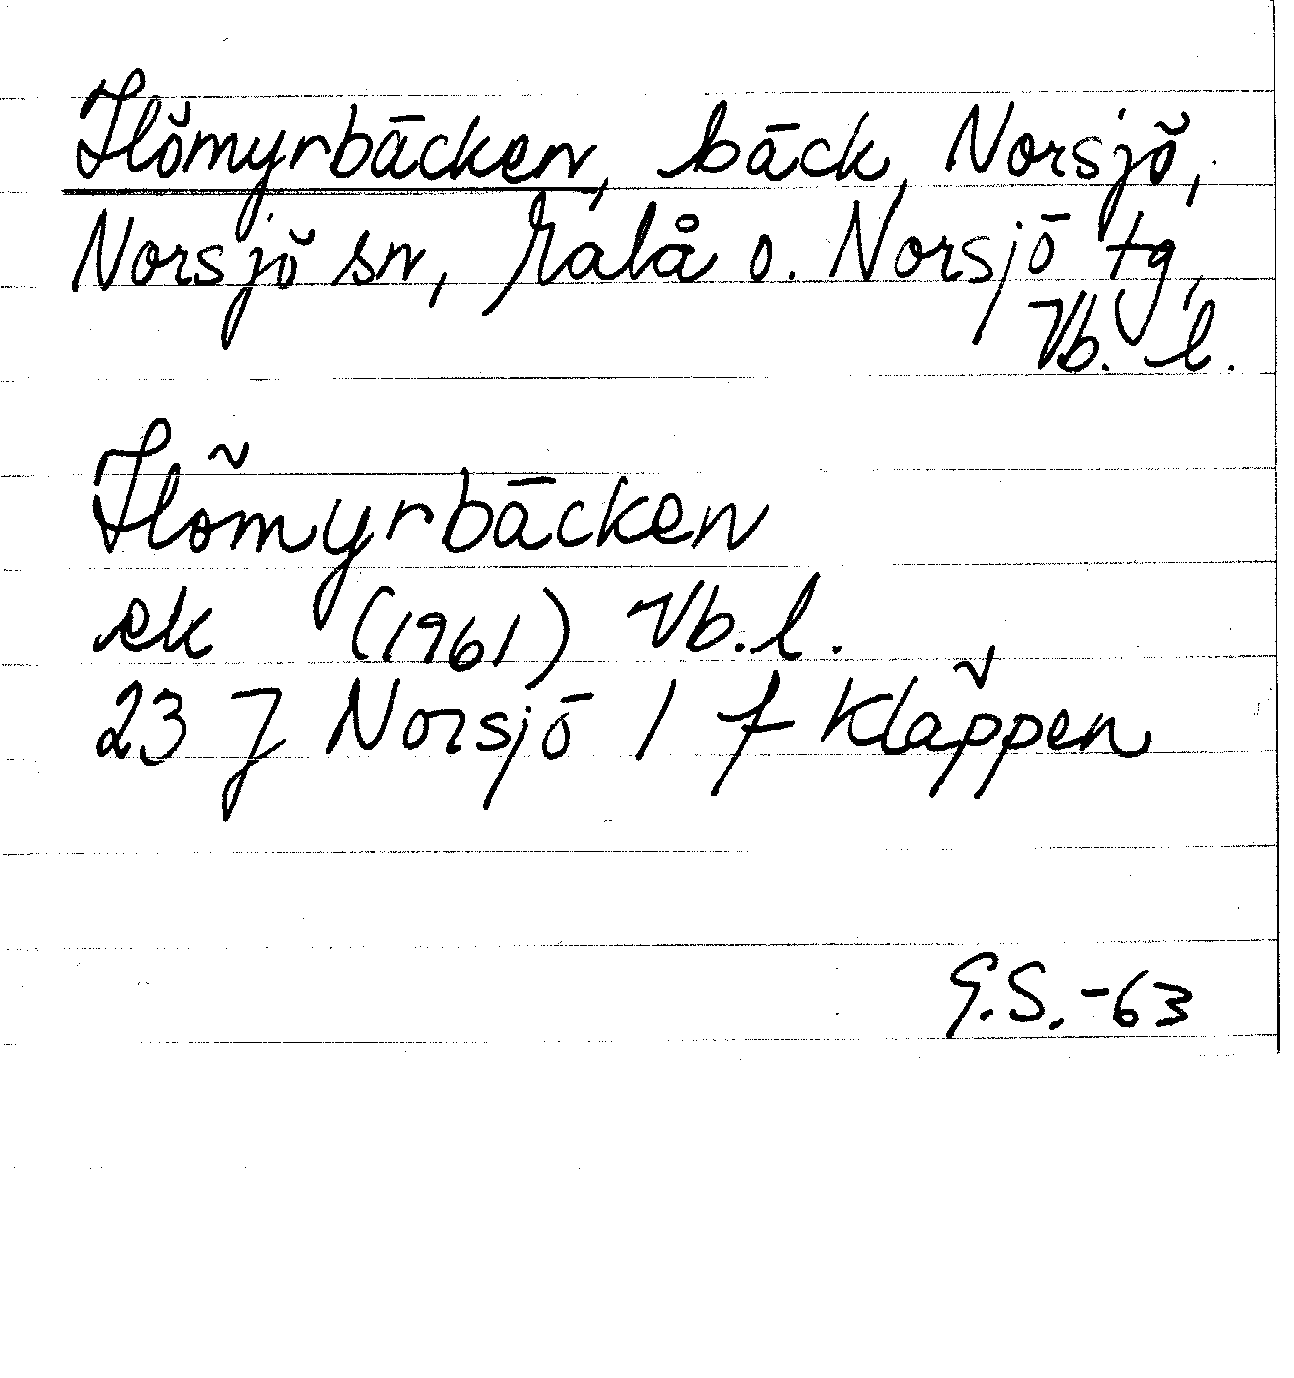 Flömyrbäcken, bäck, Norsjö,
Norsjö sn, Malå o. Norsjö tg,
Vb. l.
Flömyrbäcken
ek (1961) Vb. l.
23 J Norsjö 1 f Kläppen
G.S. -63